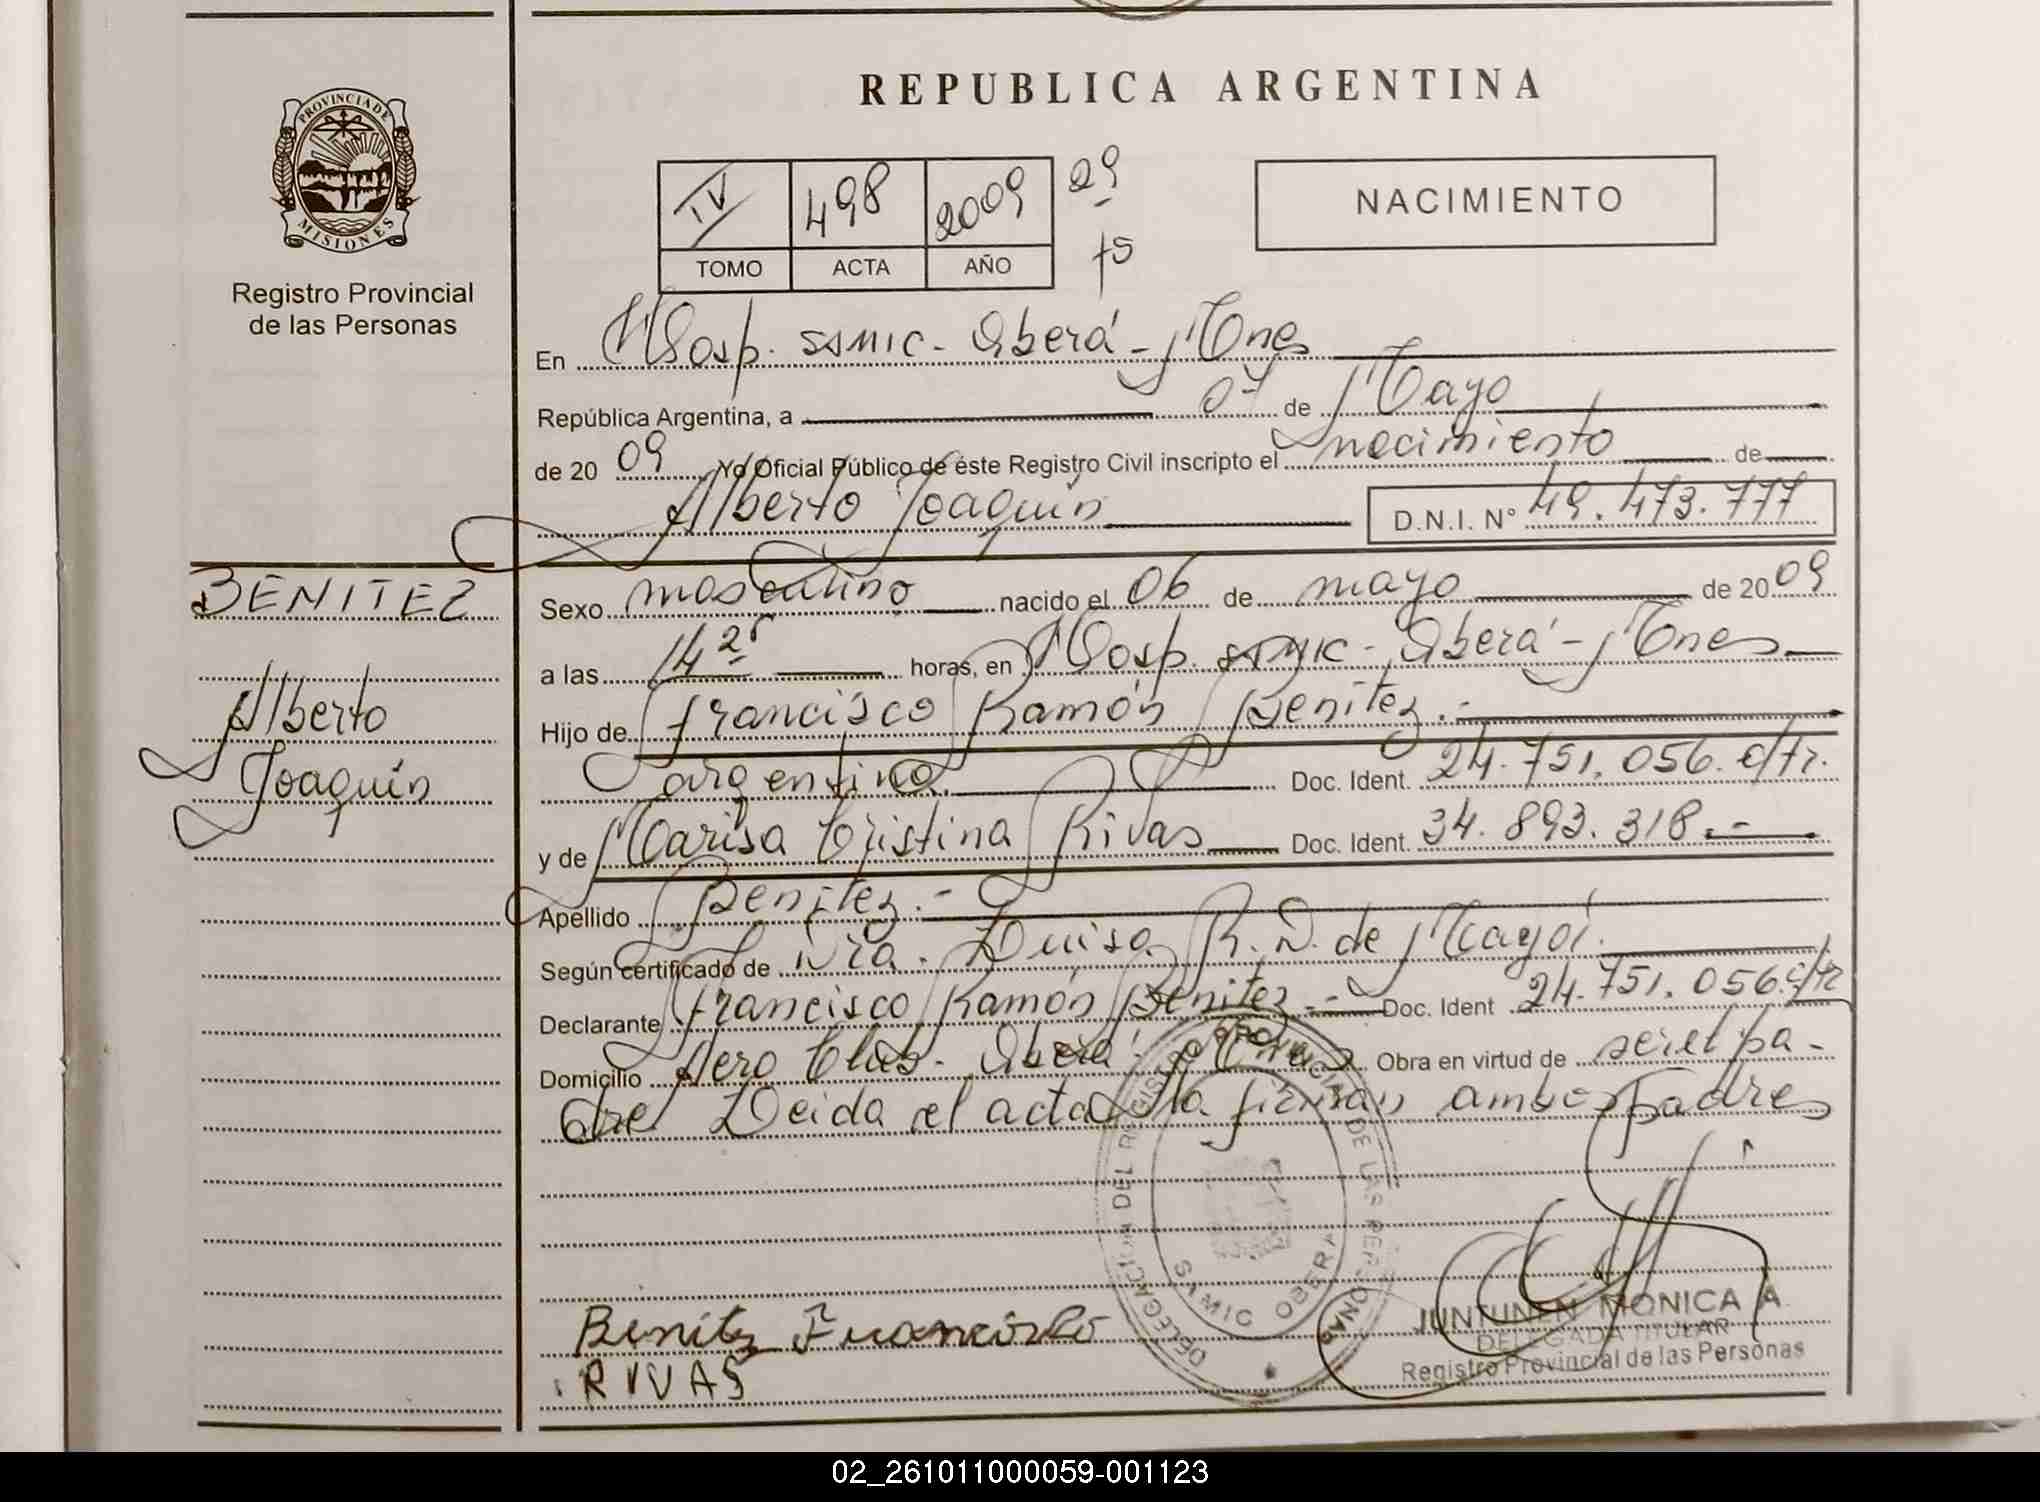 REPUBLICA ARGENTINA
PROVINCIA DE
MISIONES
Registro Provincial
de las Personas
IV 498 2009 29
TOMO ACTA AÑO fs
NACIMIENTO
En Hosp. SAMIC - Oberá - Mnes
República Argentina, a 07 de Mayo
de 2009 Yo Oficial Público de éste Registro Civil inscripto el nacimiento de
Alberto Joaquín D.N.I. N° 49.473.777
BENITEZ
Alberto
Joaquín
Sexo masculino nacido el 06 de mayo de 2009
a las 14 25 horas, en Hosp. SAMIC - Oberá - Mnes
Hijo de Francisco Ramón Benítez.-
argentina Doc. Ident. 24.751.056. c/tr.
y de Marisa Cristina Rivas Doc. Ident. 34.893.318.-
Apellido Benítez.-
Según certificado de Dra. Luisa R. D. de Mayol.
Declarante Francisco Ramón Benítez.- Doc. Ident 24.751.056 c/tr
Domicilio Aero Club - Oberá - Mnes Obra en virtud de ser el pa-
dre Leida el acta la firman ambos padres
DELEGACION DEL REGISTRO PROVINCIAL DE LAS PERSONAS
SAMIC OBERA
Benitz Francisco
RIVAS
JUNTUNEN MONICA A.
DELEGADA TITULAR
Registro Provincial de las Personas
02_261011000059-001123